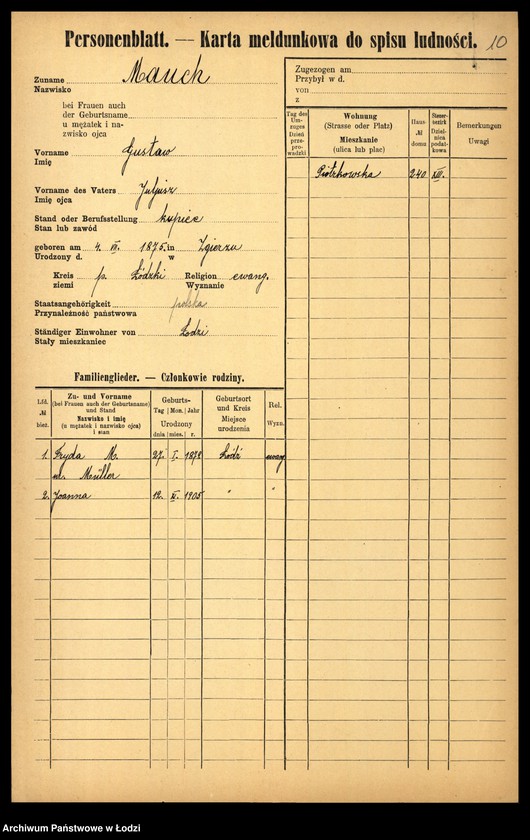 Personenblatt. — Karta meldunkowa do spisu ludności. 10
Zuname Mauch
Nazwisko
bei Frauen auch
der Geburtsname
u mężatek i na-
zwisko ojca
Vorname Gustaw
Imię
Vorname des Vaters Juljusz
Imię ojca
Stand oder Berufsstellung kupiec
Stan lub zawód
geboren am 4. 1875. in Zgierzu
Urodzony d. w
Kreis p. Łódzki Religion ewang.
ziemi Wyznanie
Staatsangehörigkeit polska
Przynależność państwowa
Ständiger Einwohner von Łodzi
Stały mieszkaniec
Zugezogen am
Przybył w d.
von
z
Tag des Um-zuges Dzień prze-pro-wadzki
Wohnung
(Strasse oder Platz)
Mieszkanie
(ulica lub plac)
Haus-
№
domu
Steuer-
bezirk
Dziel-
nica
podat-
kowa
Bemerkungen
Uwagi
Piotrkowska 240. XIII.
Familienglieder. — Członkowie rodziny.
Lfd.
№
bież.
Zu- und Vorname
(bei Frauen auch der Geburtsname)
und Stand
Nazwisko i imię
(u mężatek i nazwisko ojca)
i stan
Geburts-
Tag Mon. Jahr
Urodzony
dnia mies. r.
Geburtsort
und Kreis
Miejsce
urodzenia
Rel.
Wyzn.
1. Fryda M. 27. I. 1872 Łódź ewang
Müller
2. Joanna 12. XI. 1905 " "
Archiwum Państwowe w Łodzi